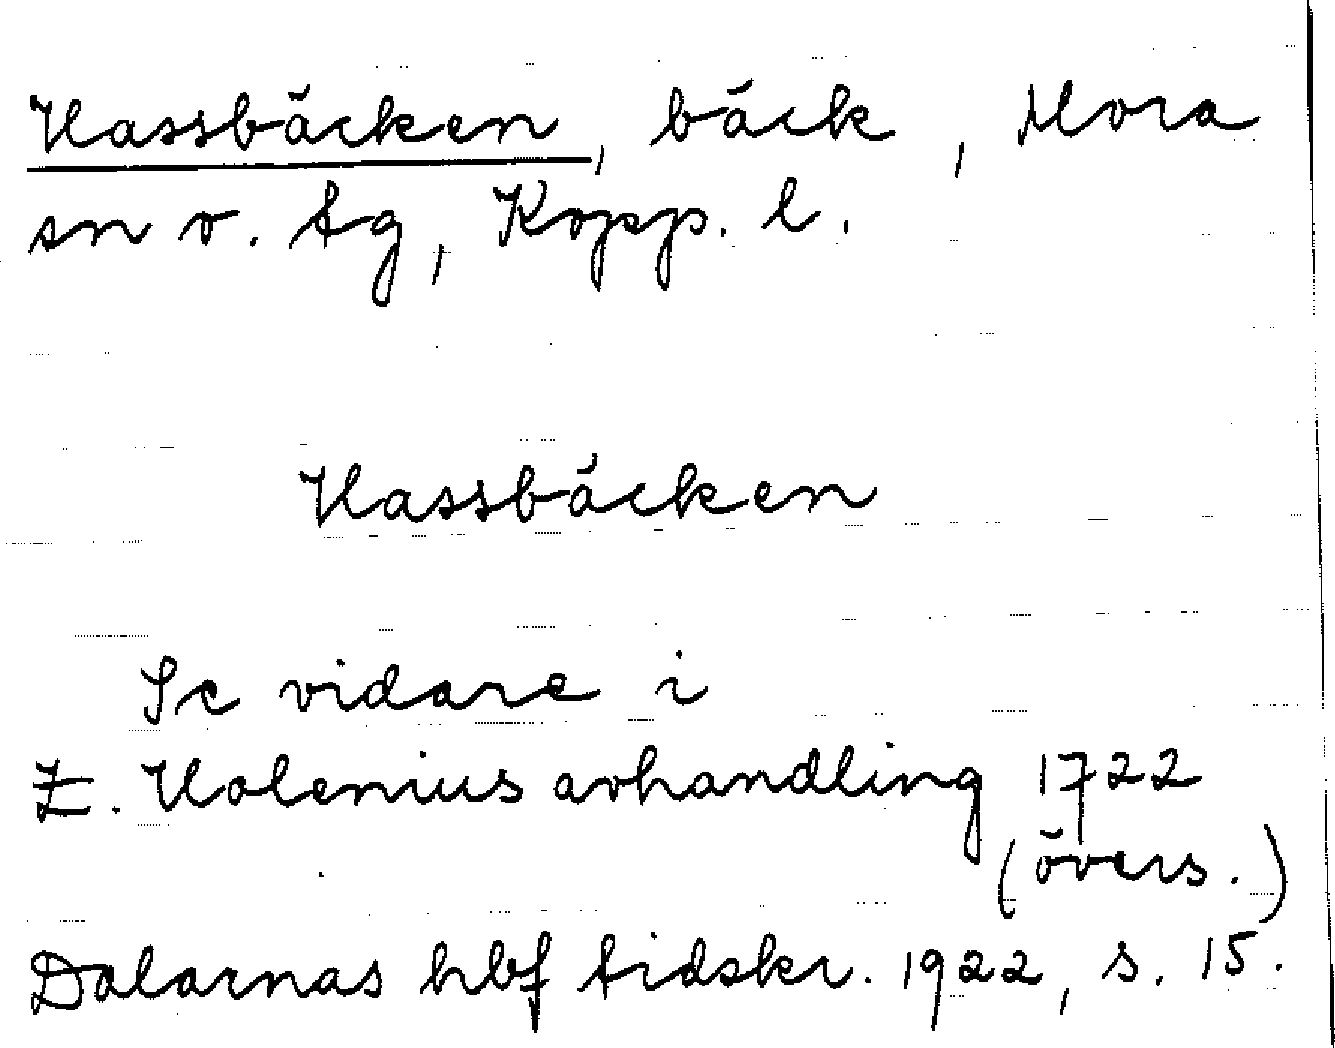 Hassbäcken, bäck, Mora
sn o. tg, Kopp. l.
Hassbäcken
Se vidare i
Z. Holenius avhandling 1722
(övers.)
Dalarnas hbf tidskr. 1922, s. 15.